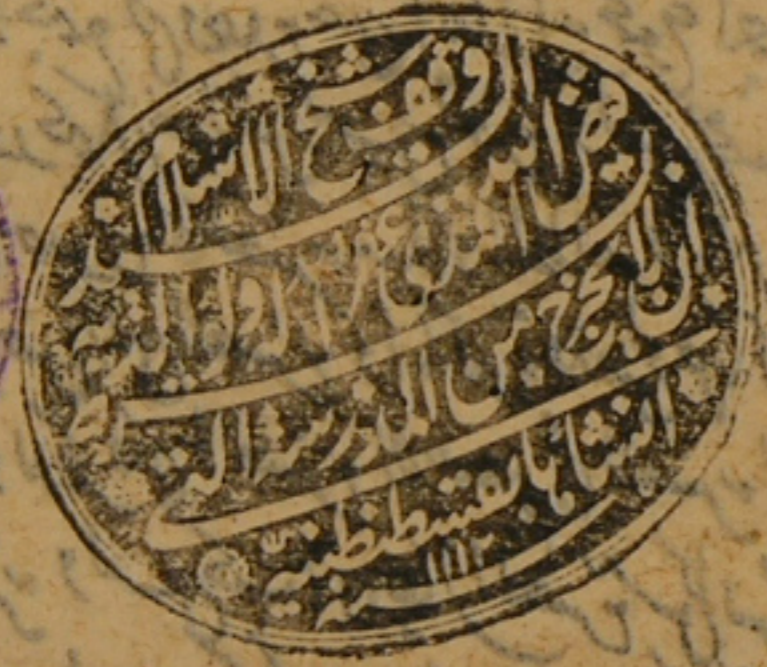 وقف شيخ الاسلام السيد
فيض الله افندى غفر الله له ولوالديه بشرط
ان لا يخرج من المدرسة التى
انشأها بقسطنطينية
سنه ١١١٢